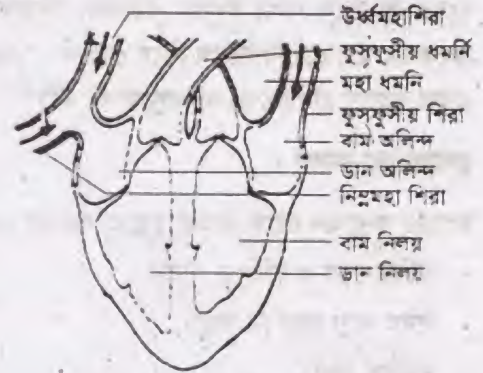 উর্ধ্বমহাশিরা
ফুসফুসীয় ধমনি
মহা ধমনি
ফুসফুসীয় শিরা
বাম অলিন্দ
ডান অলিন্দ
নিম্নমহা শিরা
বাম নিলয়
ডান নিলয়